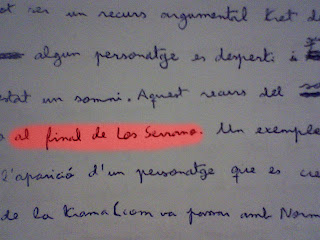 ser un recurs argumental
algun personatge es desperti i
estat un somni. Aquest recurs del
al final de Los Serrano. Un exemple
l'aparició d'un personatge que es
de la trama (com va passar amb